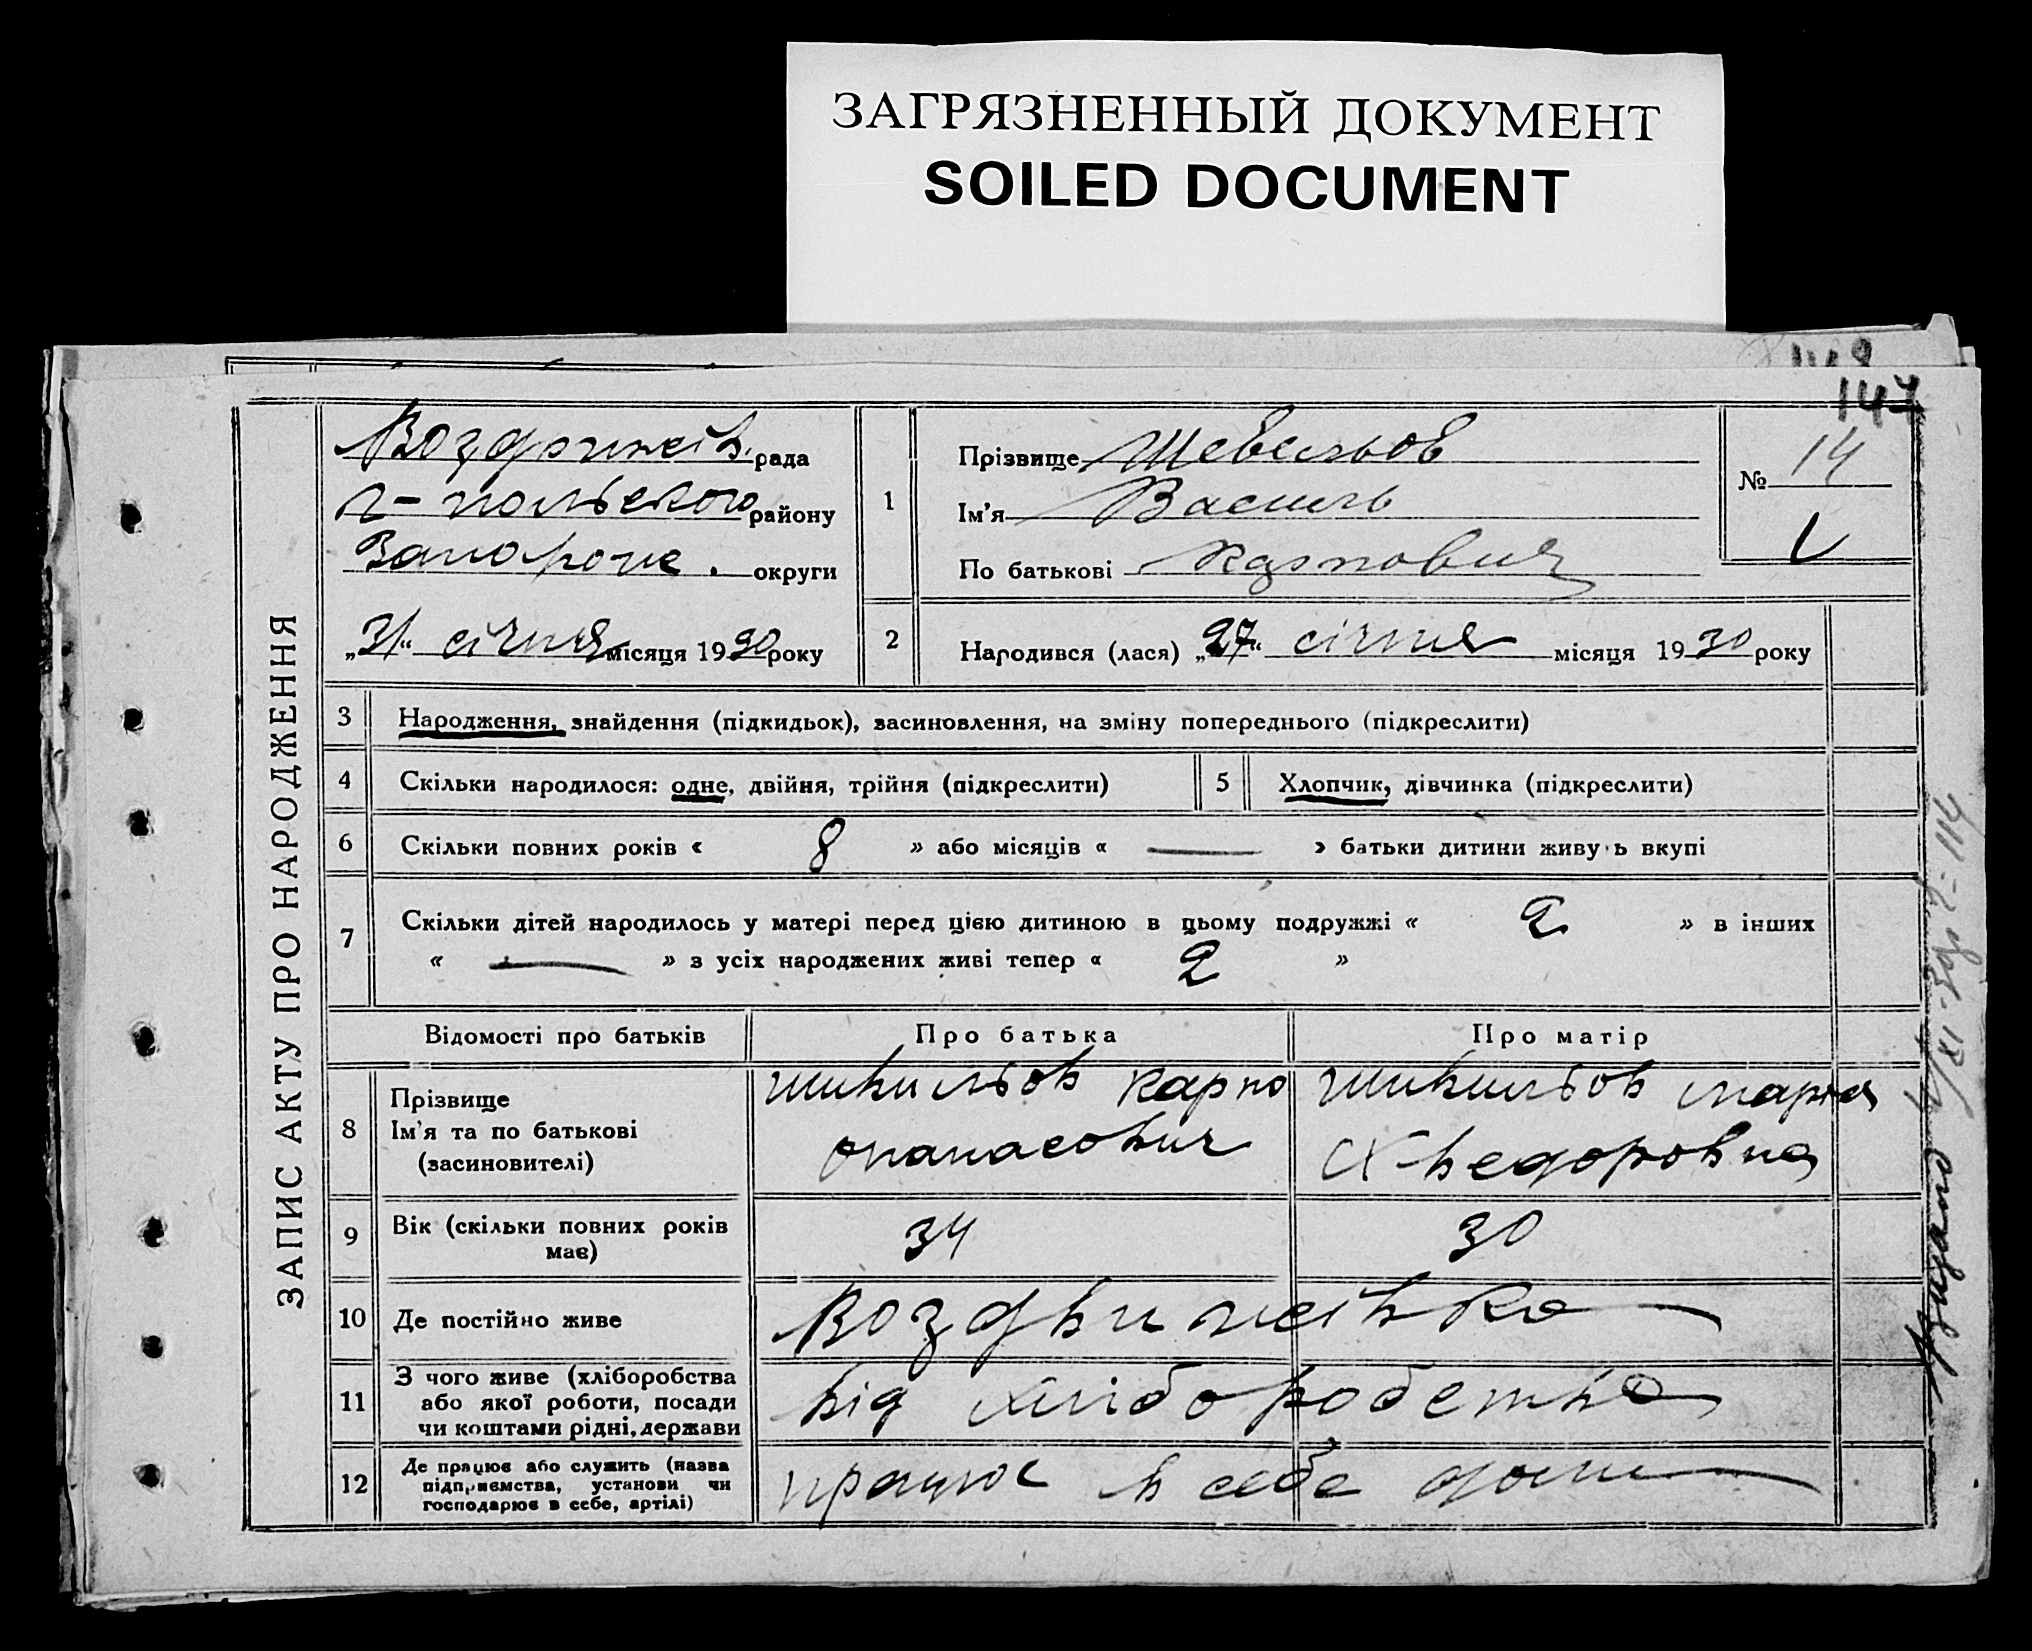 ЗАГРЯЗНЕННЫЙ ДОКУМЕНТ
SOILED DOCUMENT
147
ЗАПИС АКТУ ПРО НАРОДЖЕННЯ
Воздвижів. рада
г-польського району
Запорож. округи
„31“ січня місяця 1930 року
1
Прізвище Шевельов
Ім'я Василь
По батькові Карпович
№ 14
2 Народився (лася) „27“ січня місяця 1930 року
3 Народження, знайдення (підкидьок), засиновлення, на зміну попереднього (підкреслити)
4 Скільки народилося: одне, двійня, трійня (підкреслити) 5 Хлопчик, дівчинка (підкреслити)
6 Скільки повних років « 8 » або місяців « — » батьки дитини живуть вкупі
7 Скільки дітей народилось у матері перед цією дитиною в цьому подружжі « 2 » в інших
« — » з усіх народжених живі тепер « 2 »
Відомості про батьків Про батька Про матір
8 Прізвище
Ім'я та по батькові
(засиновителі)
шивильов карпо
опанасович
шивильов марія
хведоровна
9 Вік (скільки повних років
має)
34 30
10 Де постійно живе Воздвижівка
11 З чого живе (хліборобства
або якої роботи, посади
чи коштами рідні, держави
від хліборобства
12 Де працює або служить (назва
підприємства, установи чи
господарює в себе, артілі)
працює в себе дома
Видано